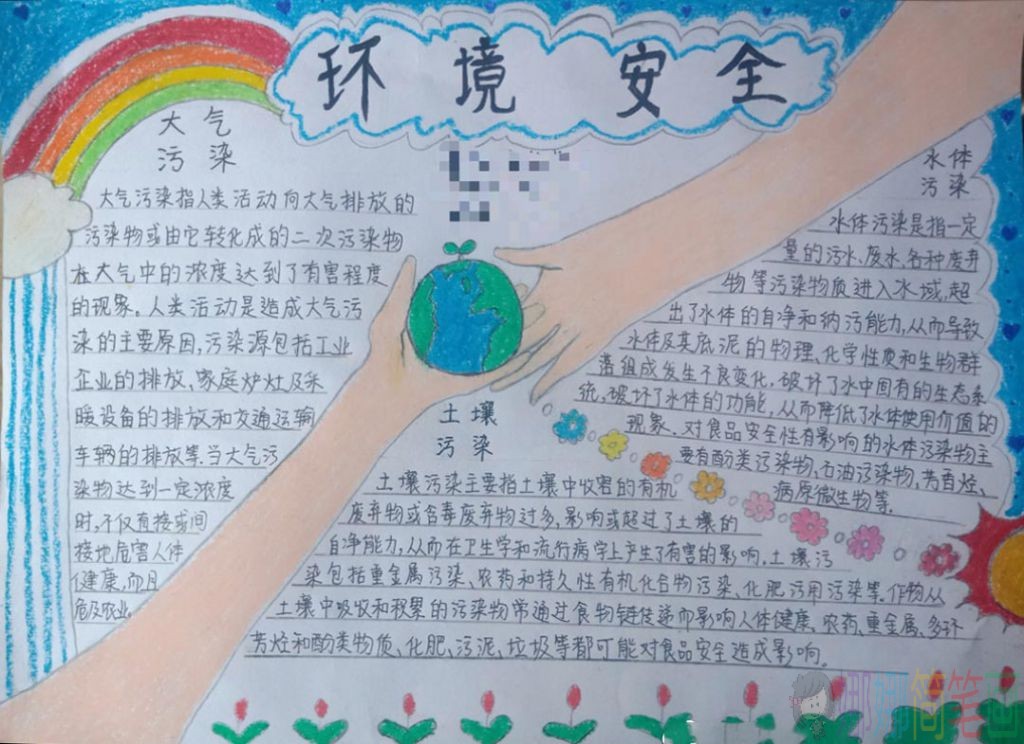 环境安全
大气
污染
大气污染指人类活动向大气排放的
污染物或由它转化成的二次污染物
在大气中的浓度达到了有害程度
的现象。人类活动是造成大气污
染的主要原因,污染源包括工业
企业的排放、家庭炉灶及采
暖设备的排放和交通运输
车辆的排放等。当大气污
染物达到一定浓度
时,不仅直接或间
接地危害人体
健康,而且
危及农业。
水体
污染
水体污染是指一定
量的污水、废水、各种废弃
物等污染物质进入水域,超
出了水体的自净和纳污能力,从而导致
水体及其底泥的物理、化学性质和生物群
落组成发生不良变化,破坏了水中固有的生态系
统,破坏了水体的功能,从而降低了水体使用价值的
现象。对食品安全性有影响的水体污染物主
要有酚类污染物,石油污染物,芳香烃、
病原微生物等。
土壤
污染
土壤污染主要指土壤中收害的有机
废弃物或含毒废弃物过多,影响或超过了土壤的
自净能力,从而在卫生学和流行病学上产生了有害的影响。土壤污
染包括重金属污染、农药和持久性有机化合物污染、化肥污用污染等。作物从
土壤中吸收和积累的污染物常通过食物链传递而影响人体健康。农药、重金属、多环
芳烃和酚类物质、化肥、污泥、垃圾等都可能对食品安全造成影响。
娜娜简笔画